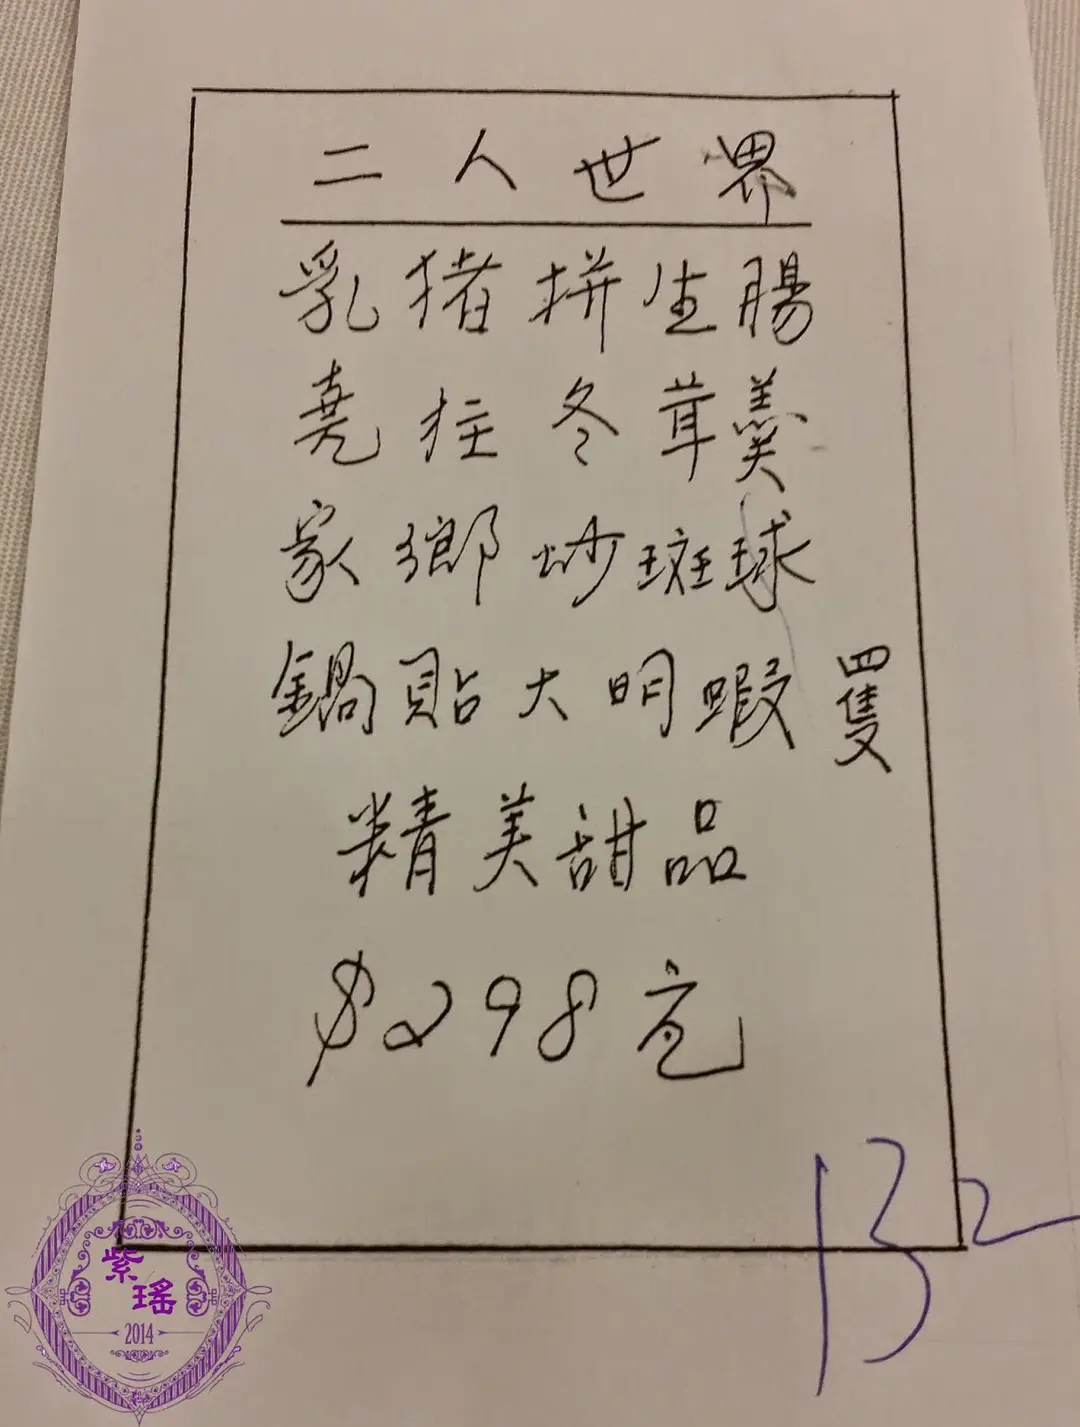 二人世界
乳猪拼生腸
堯柱冬茸羹
家鄉炒斑球
鍋貼大明蝦 四隻
精美甜品
$298元
132
紫瑤
2014